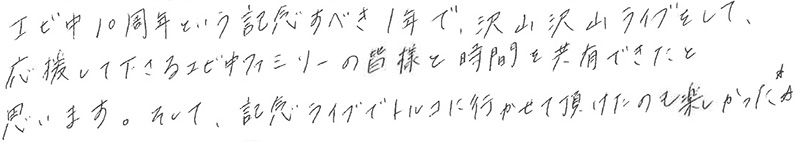 エビ中10周年という記念すべき1年で、沢山沢山ライブをして、
応援して下さるエビ中ファミリーの皆様と時間を共有できたと
思います。そして、記念ライブでトルコに行かせて頂けたのも楽しかった☆☆